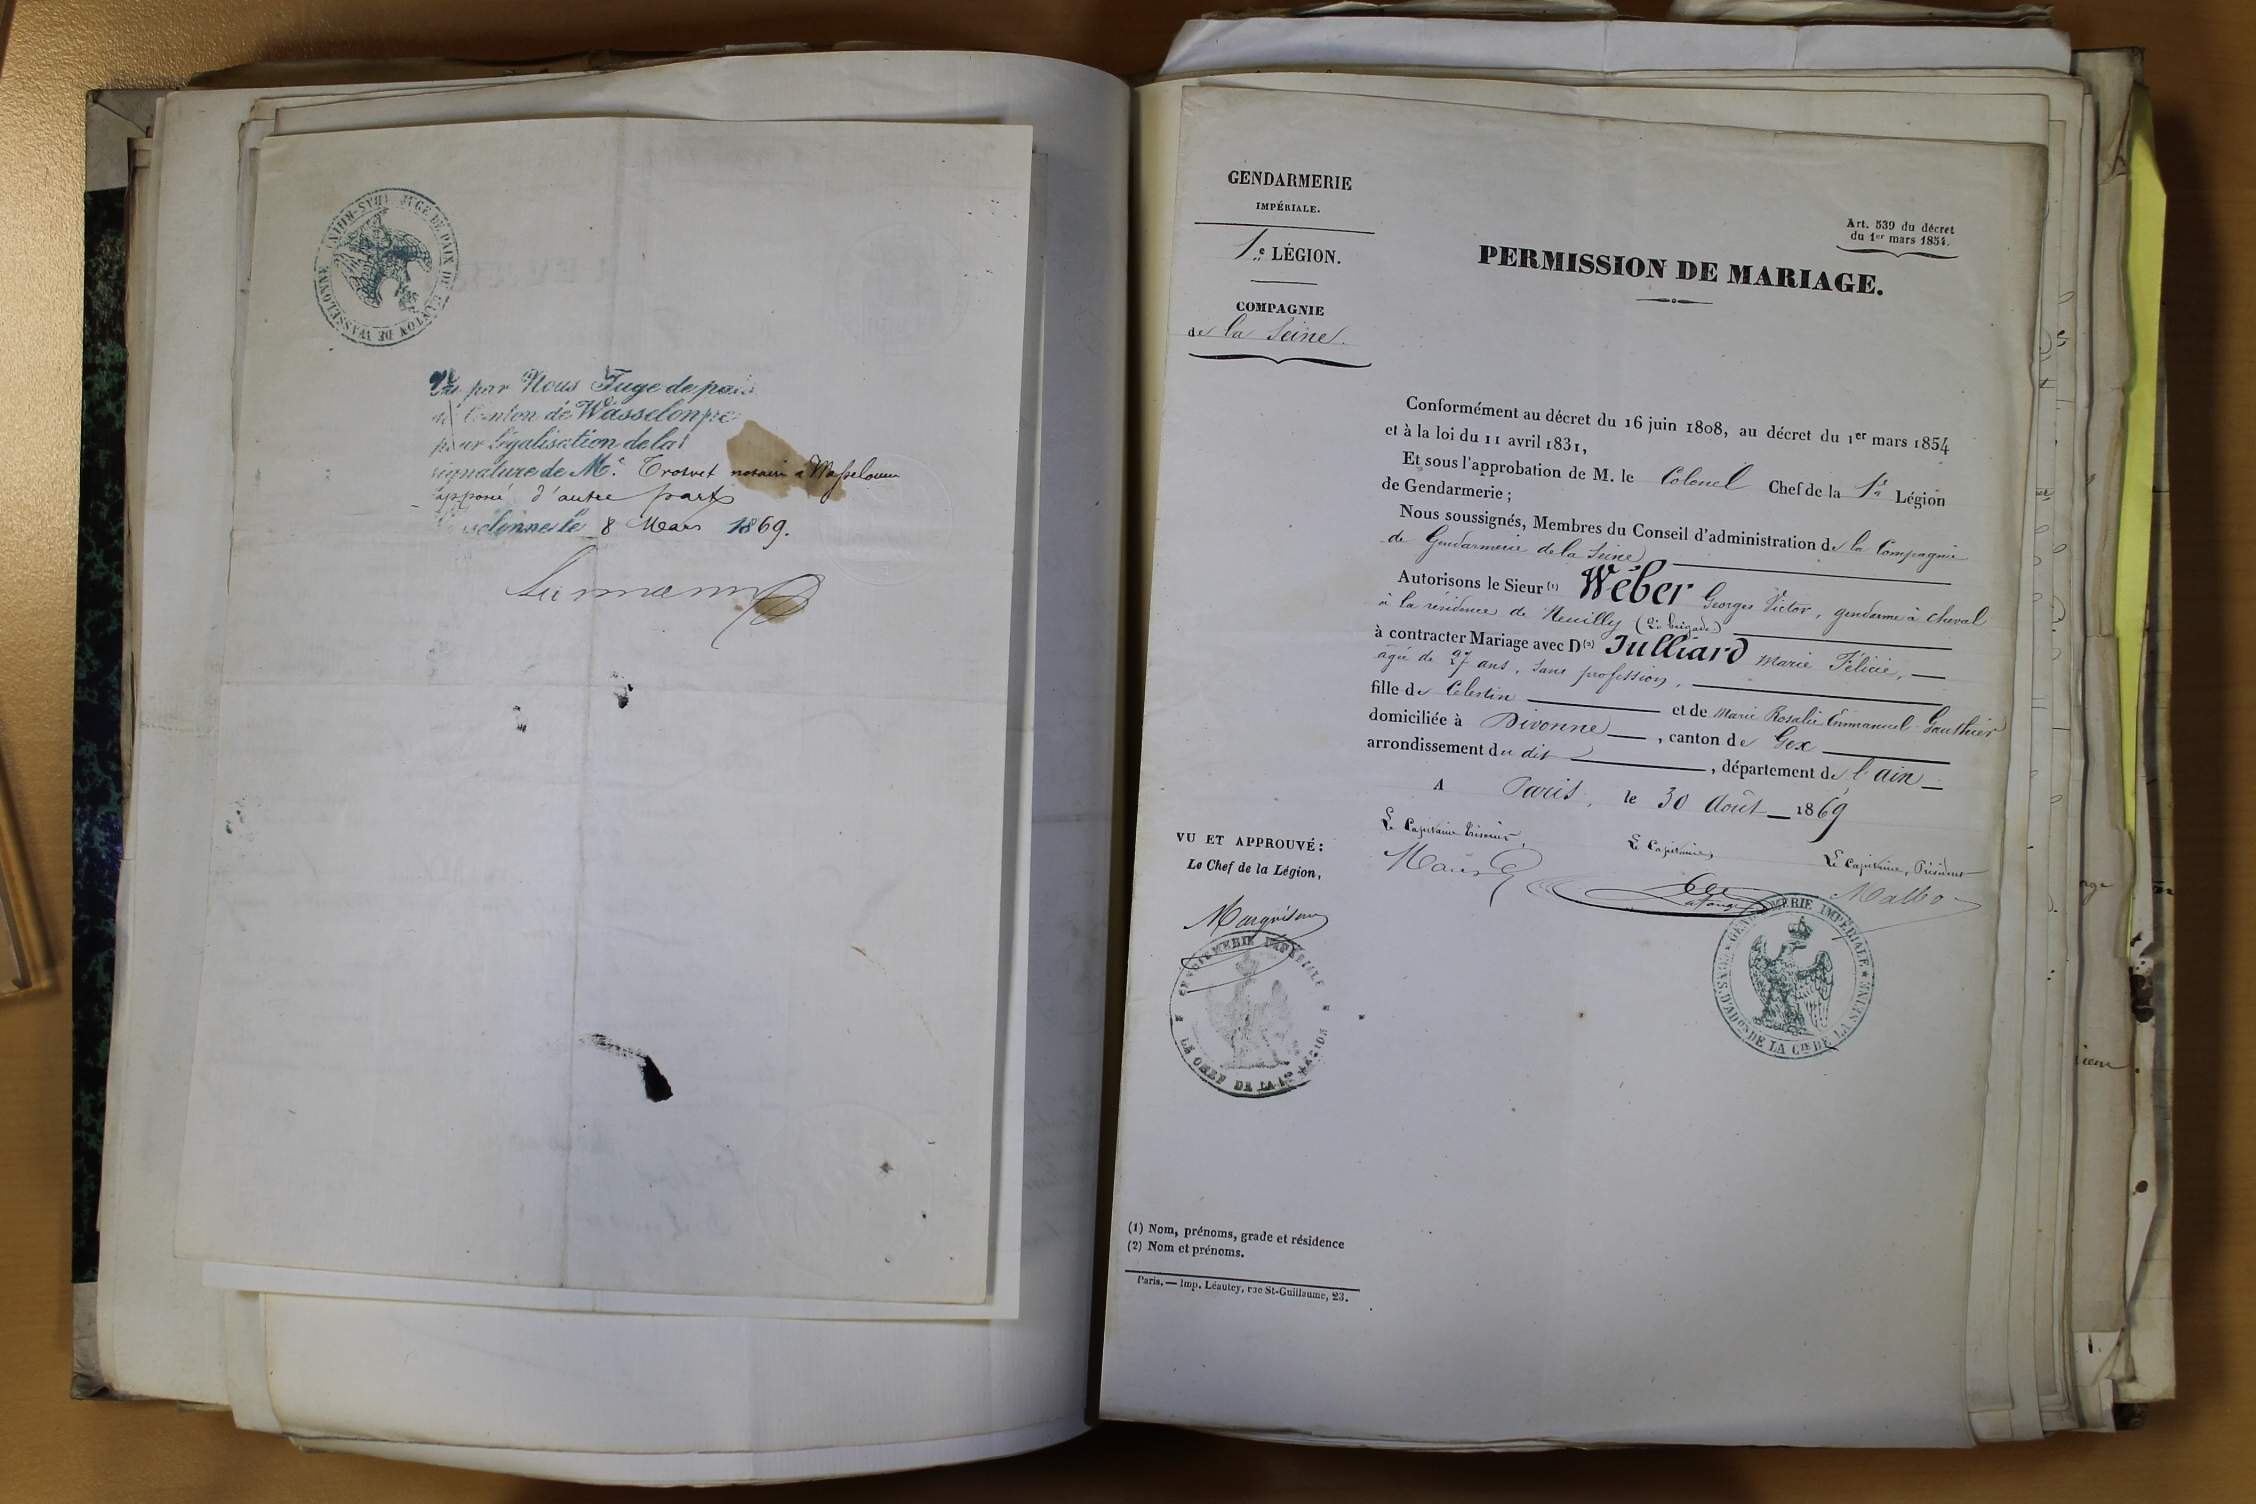 JUGE DE PAIX DU CANTON DE WASSELONNE (BAS-RHIN)
Vu par Nous Juge de paix
du Canton de Wasselonne
pour Légalisation de la
signature de Me. notaire à Wasselonne
apposée d'autre part
Wasselonne le 8 Mars 1869.
GENDARMERIE
IMPÉRIALE.
1re LÉGION.
COMPAGNIE
de la Seine.
Art. 539 du décret
du 1er mars 1854.
PERMISSION DE MARIAGE.
Conformément au décret du 16 juin 1808, au décret du 1er mars 1854
et à la loi du 11 avril 1831,
Et sous l'approbation de M. le Colonel Chef de la 1re Légion
de Gendarmerie;
Nous soussignés, Membres du Conseil d'administration de la Compagnie
de Gendarmerie de la Seine
Autorisons le Sieur (1) Wéber Georges Victor, gendarme à cheval
à la résidence de Neuilly (2e brigade)
à contracter Mariage avec D(2) Julliard Marie Félicie,
âgée de 27 ans, sans profession,
fille de Celestin et de Marie Rosalie Emmanuel Gauthier
domiciliée à Divonne, canton de Gex
arrondissement du dit, département de l'ain
A Paris, le 30 Août 1869
Le Capitaine Trésorier,
Le Capitaine,
Le Capitaine, Président
Malbo
VU ET APPROUVÉ:
Le Chef de la Légion,
GENDARMERIE IMPÉRIALE
LE CHEF DE LA 1re LÉGION
GENDARMERIE IMPÉRIALE
CONS. D'ADON DE LA CIE DE LA SEINE
(1) Nom, prénoms, grade et résidence
(2) Nom et prénoms.
Paris. — Imp. Léautey, rue St-Guillaume, 23.